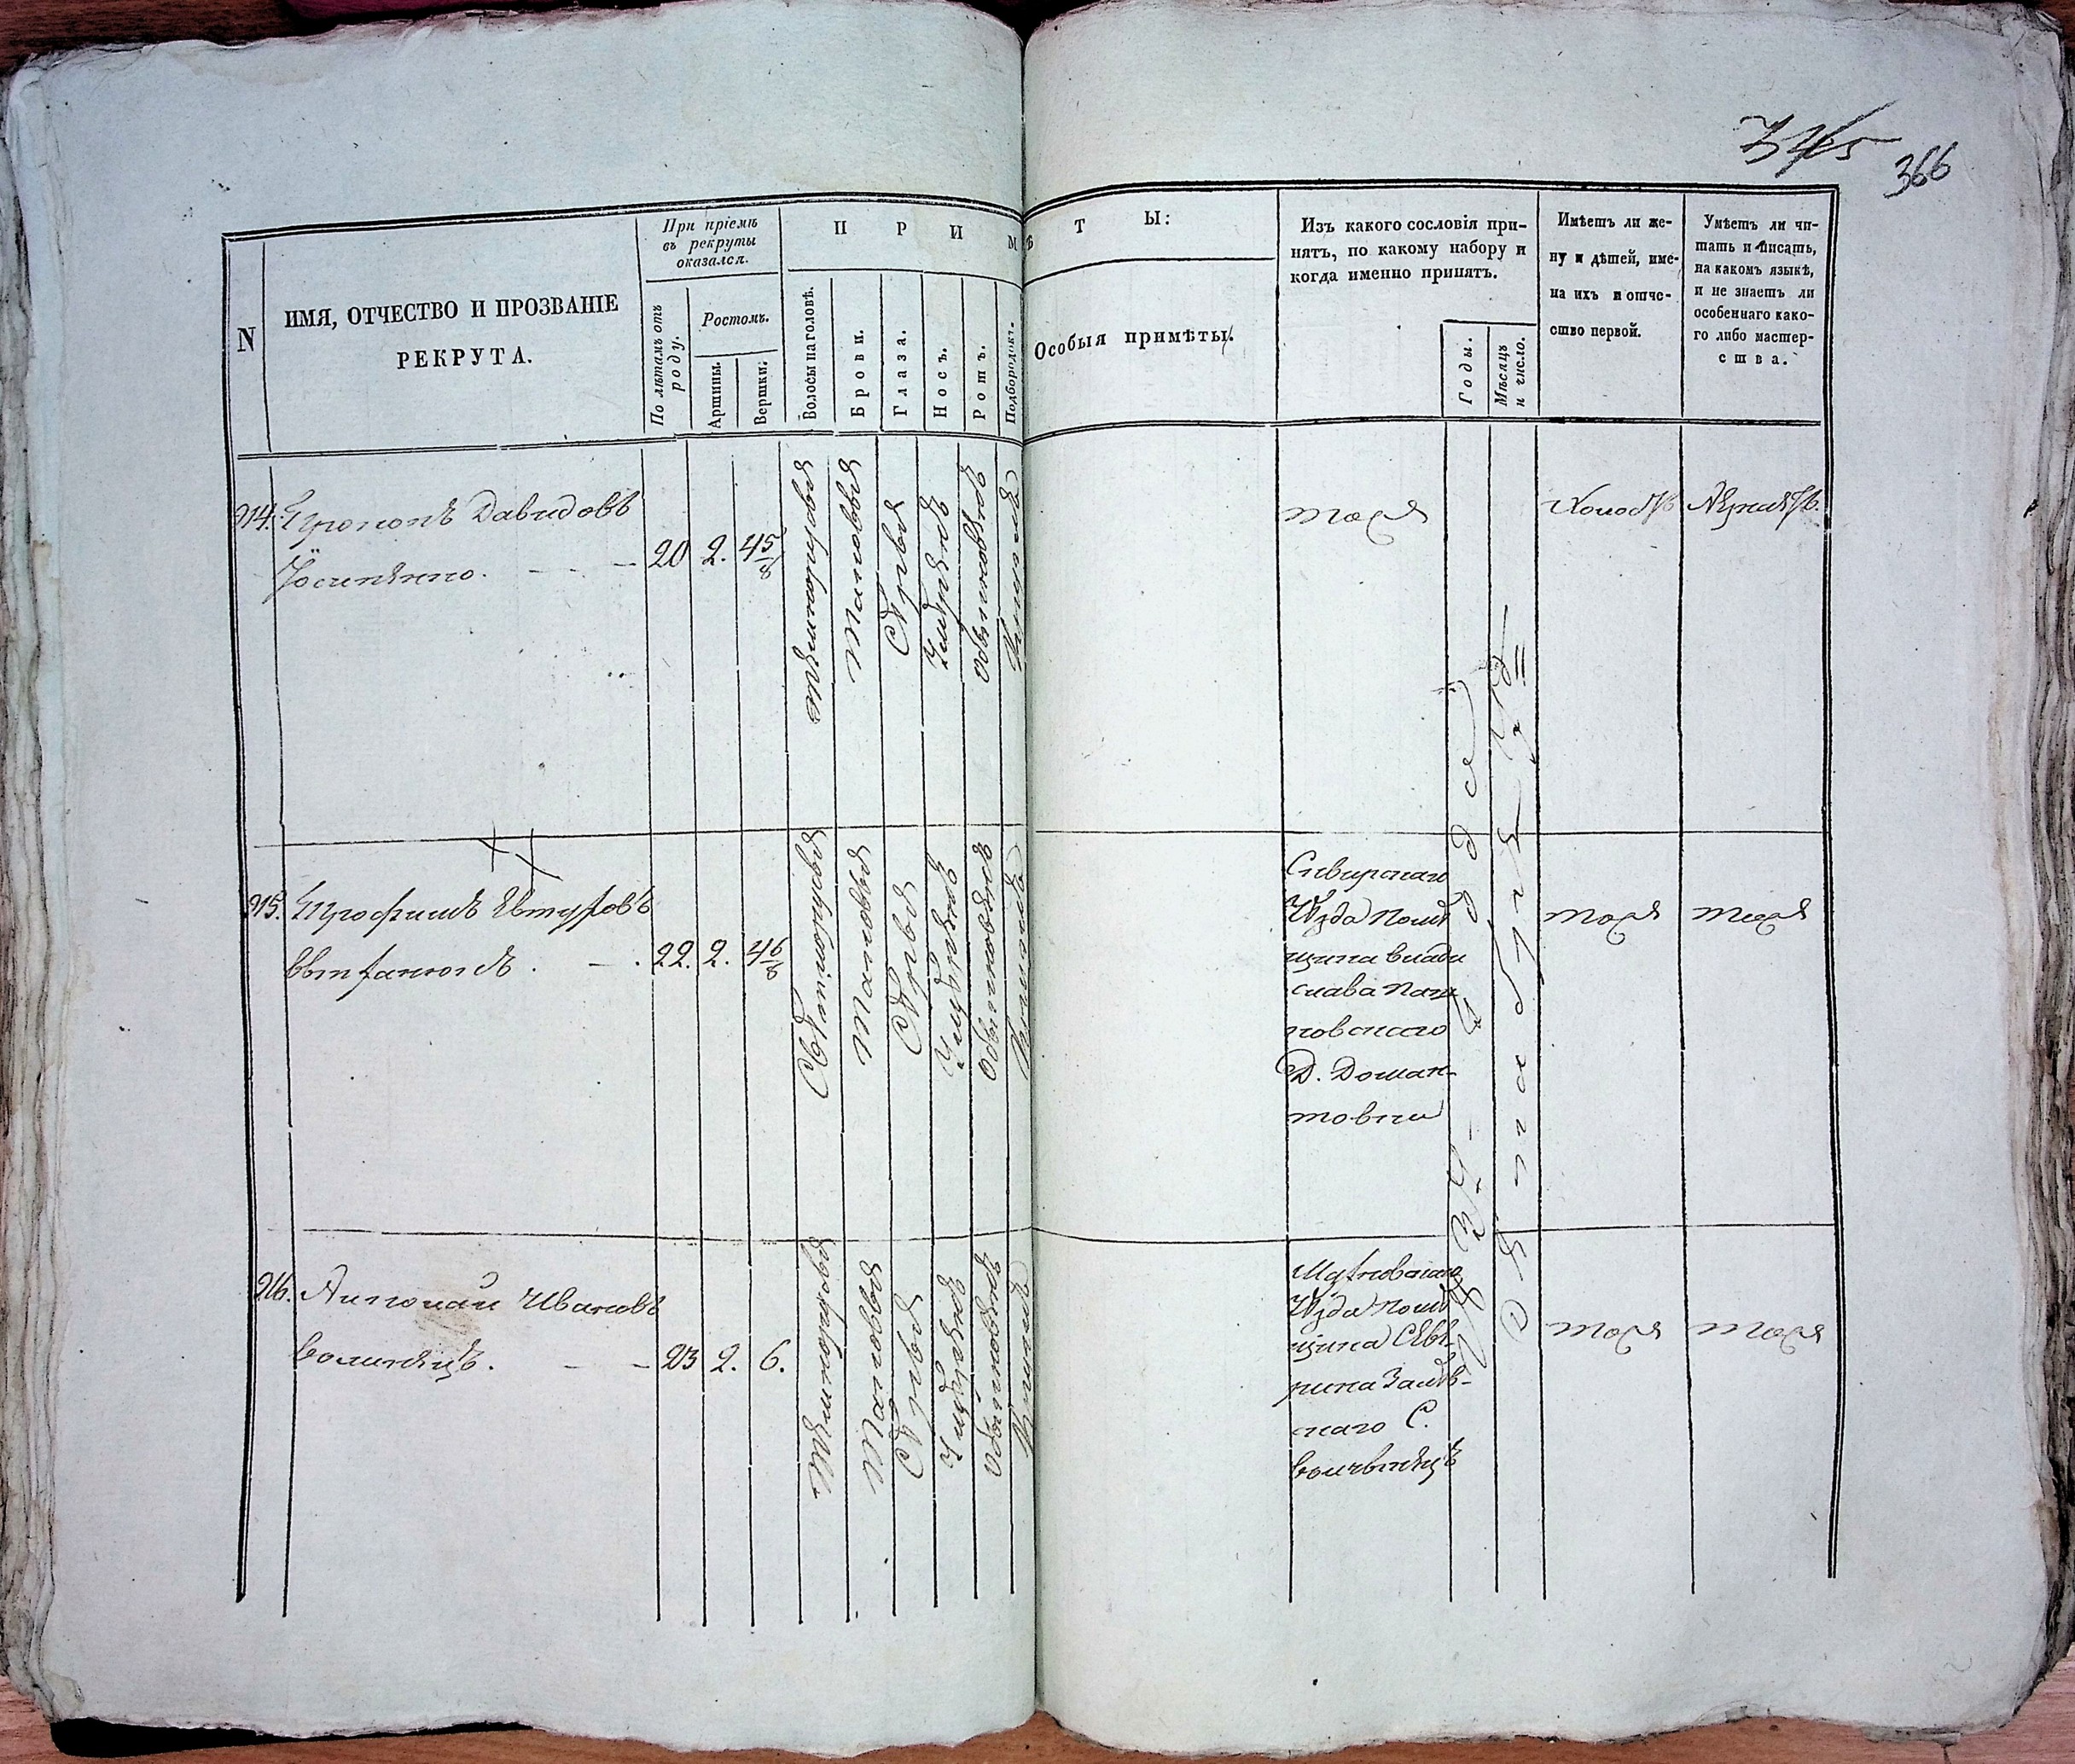 345
366
N
ИМЯ, ОТЧЕСТВО И ПРОЗВАНІЕ
РЕКРУТА.
При пріемѣ
въ рекруты
оказался.
По лѣтамъ отъ
роду.
Ростомъ.
Аршины.
Вершки.
П Р И М Ѣ Т Ы:
Волосы на головѣ.
Брови.
Глаза.
Носъ.
Ротъ.
Подбородокъ.
Особыя примѣты.
Изъ какого сословія при-
нятъ, по какому набору и
когда именно принятъ.
Годы.
Мѣсяцъ
и число.
Имѣетъ ли же-
ну и дѣтей, име-
на ихъ и отче-
ство первой.
Умѣетъ ли чи-
тать и писать,
на какомъ языкѣ,
и не знаетъ ли
особеннаго како-
го либо мастер-
ства.
914. Прокопъ Давидовъ
Іосипенко.
20 2. 4 5/8
темнорусыя
таковыя
сѣрыя
умѣренъ
обыкновенъ
круглъ
тоже
Холостъ
Неумѣетъ.
915. Трофимъ
22. 2. 4 6/8
Свѣтлорусыя
таковыя
Сѣрыя
умѣренъ
обыкновенъ
круглъ
Уѣзда помѣ
щика Влади
слава
новскаго
Д. Доман-
товки
тоже
тоже
916. Николай Ивановъ
Волинецъ.
23 2. 6.
Темнорусыя
таковыя
Сѣрыя
умѣренъ
обыкновенъ
круглъ
Уѣзда помѣ
щика Севѣ-
рина Залѣв-
скаго С.
тоже
тоже